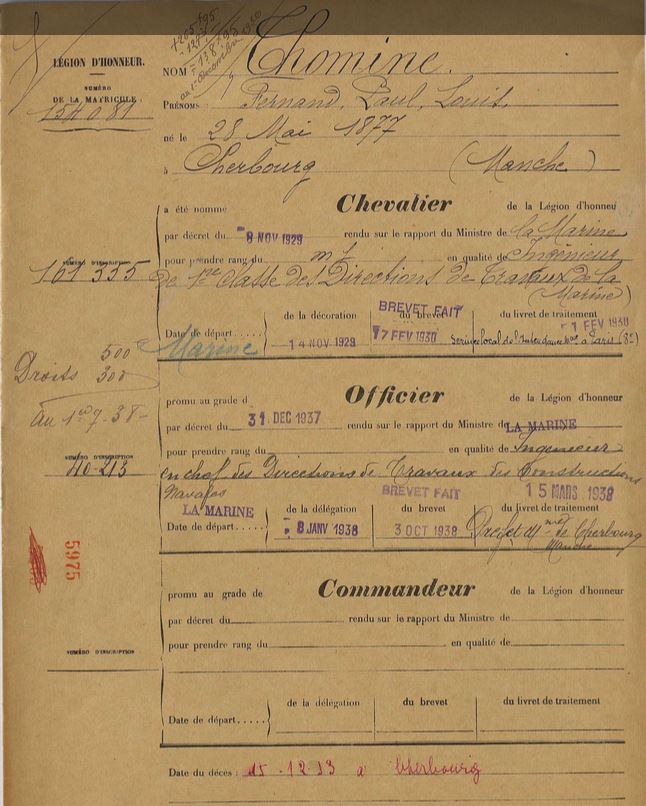 LÉGION D'HONNEUR.
NUMÉRO
DE LA MATRICULE :
154081
NOM Thomine.
PRÉNOMS : Fernand, Paul, Louis.
né le 28 Mai 1877
à Cherbourg (Manche)
a été nommé Chevalier de la Légion d'honneu
par décret du 8 NOV 1929 rendu sur le rapport du Ministre de la Marine
pour prendre rang du m j en qualité de Ingénieur
NUMÉRO D'INSCRIPTION
161 335
de 1re classe des Directions de Travaux de la
(Marine)
de la décoration
BREVET FAIT
du brevet
du livret de traitement
Date de départ.....
Marine
14 NOV 1929
17 FEV 1930
1 FEV 1930
Service local de l'Intendance à Paris (8e)
Droits 500
300
au 1er 7-38-
promu au grade d Officier de la Légion d'honneur
par décret du 31 DEC 1937 rendu sur le rapport du Ministre de LA MARINE
pour prendre rang du en qualité de Ingénieur
NUMÉRO D'INSCRIPTION
40-213
en chef des Directions de Travaux des Constructions
Navales
LA MARINE
de la délégation
BREVET FAIT
du brevet
15 MARS 1938
du livret de traitement
Date de départ.....
8 JANV 1938
3 OCT 1938
Préfet Mme de Cherbourg
Manche
5975
promu au grade de Commandeur de la Légion d'honneur
par décret du rendu sur le rapport du Ministre de
pour prendre rang du en qualité de
NUMÉRO D'INSCRIPTION
de la délégation
du brevet
du livret de traitement
Date de départ.....
Date du décès : 15.12.53 à Cherbourg